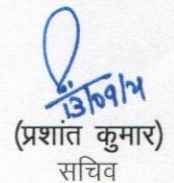 13/09/21
(प्रशांत कुमार)
सचिव